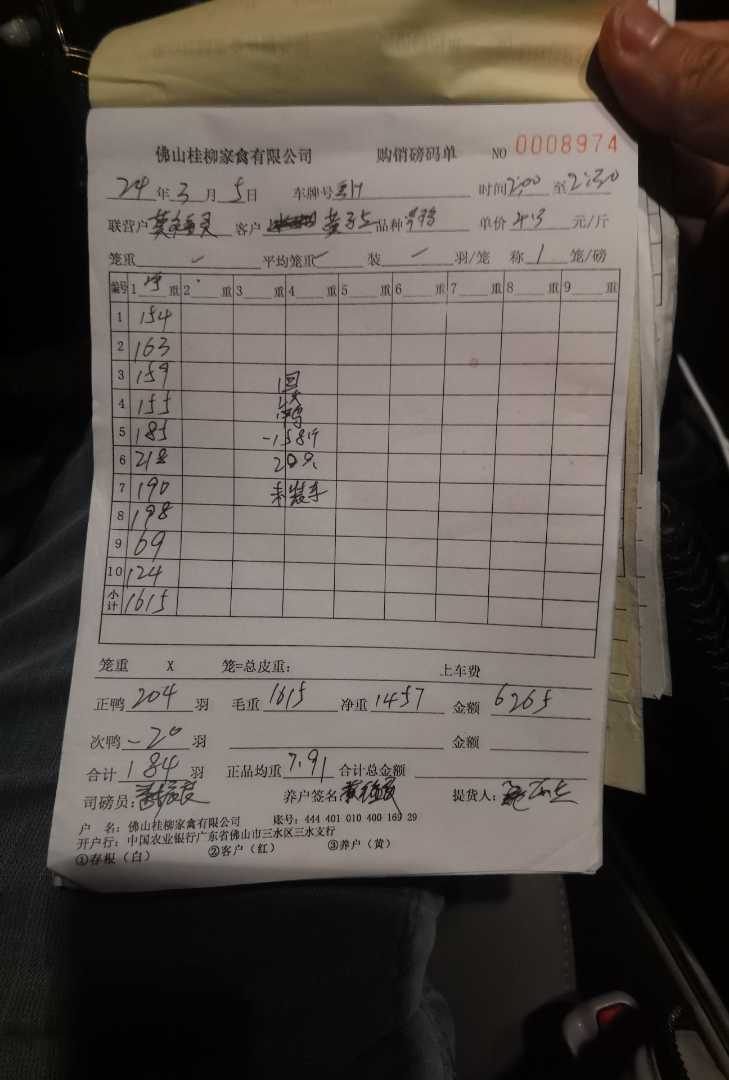 佛山桂柳家禽有限公司 购销磅码单 NO 0008974
24年3月5日 车牌号 时间2:00至2:30
联营户 客户 品种 单价4.3元/斤
笼重 平均笼重 装 羽/笼 称1笼/磅
编号 1 重 2 重 3 重 4 重 5 重 6 重 7 重 8 重 9 重
1 154
2 163
3 159
4 155
5 185
6 218
7 190
8 198
9 69
10 124
小计 1615
回
鸭
-158斤
20只
未装车
笼重 X 笼=总皮重: 上车费
正鸭204羽 毛重1615 净重1457 金额6265
次鸭-20羽 金额
合计184羽 正品均重7.91 合计总金额
司磅员: 养户签名 提货人:
户 名: 佛山桂柳家禽有限公司 账号: 444 401 010 400 169 29
开户行: 中国农业银行广东省佛山市三水区三水支行
①存根(白) ②客户(红) ③养户(黄)